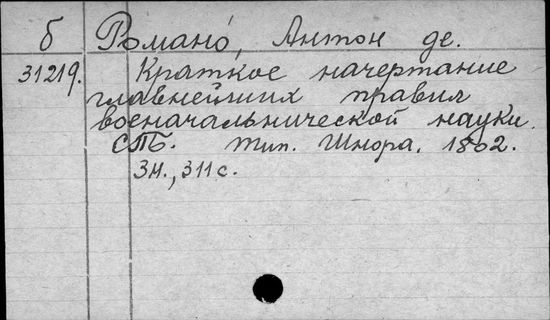 б Романо́, Антон де.
31219. Краткое начертание
главнейших правил
военачальнической науки.
СПБ. Тип. Шнора. 1802.
3н., 311 с.